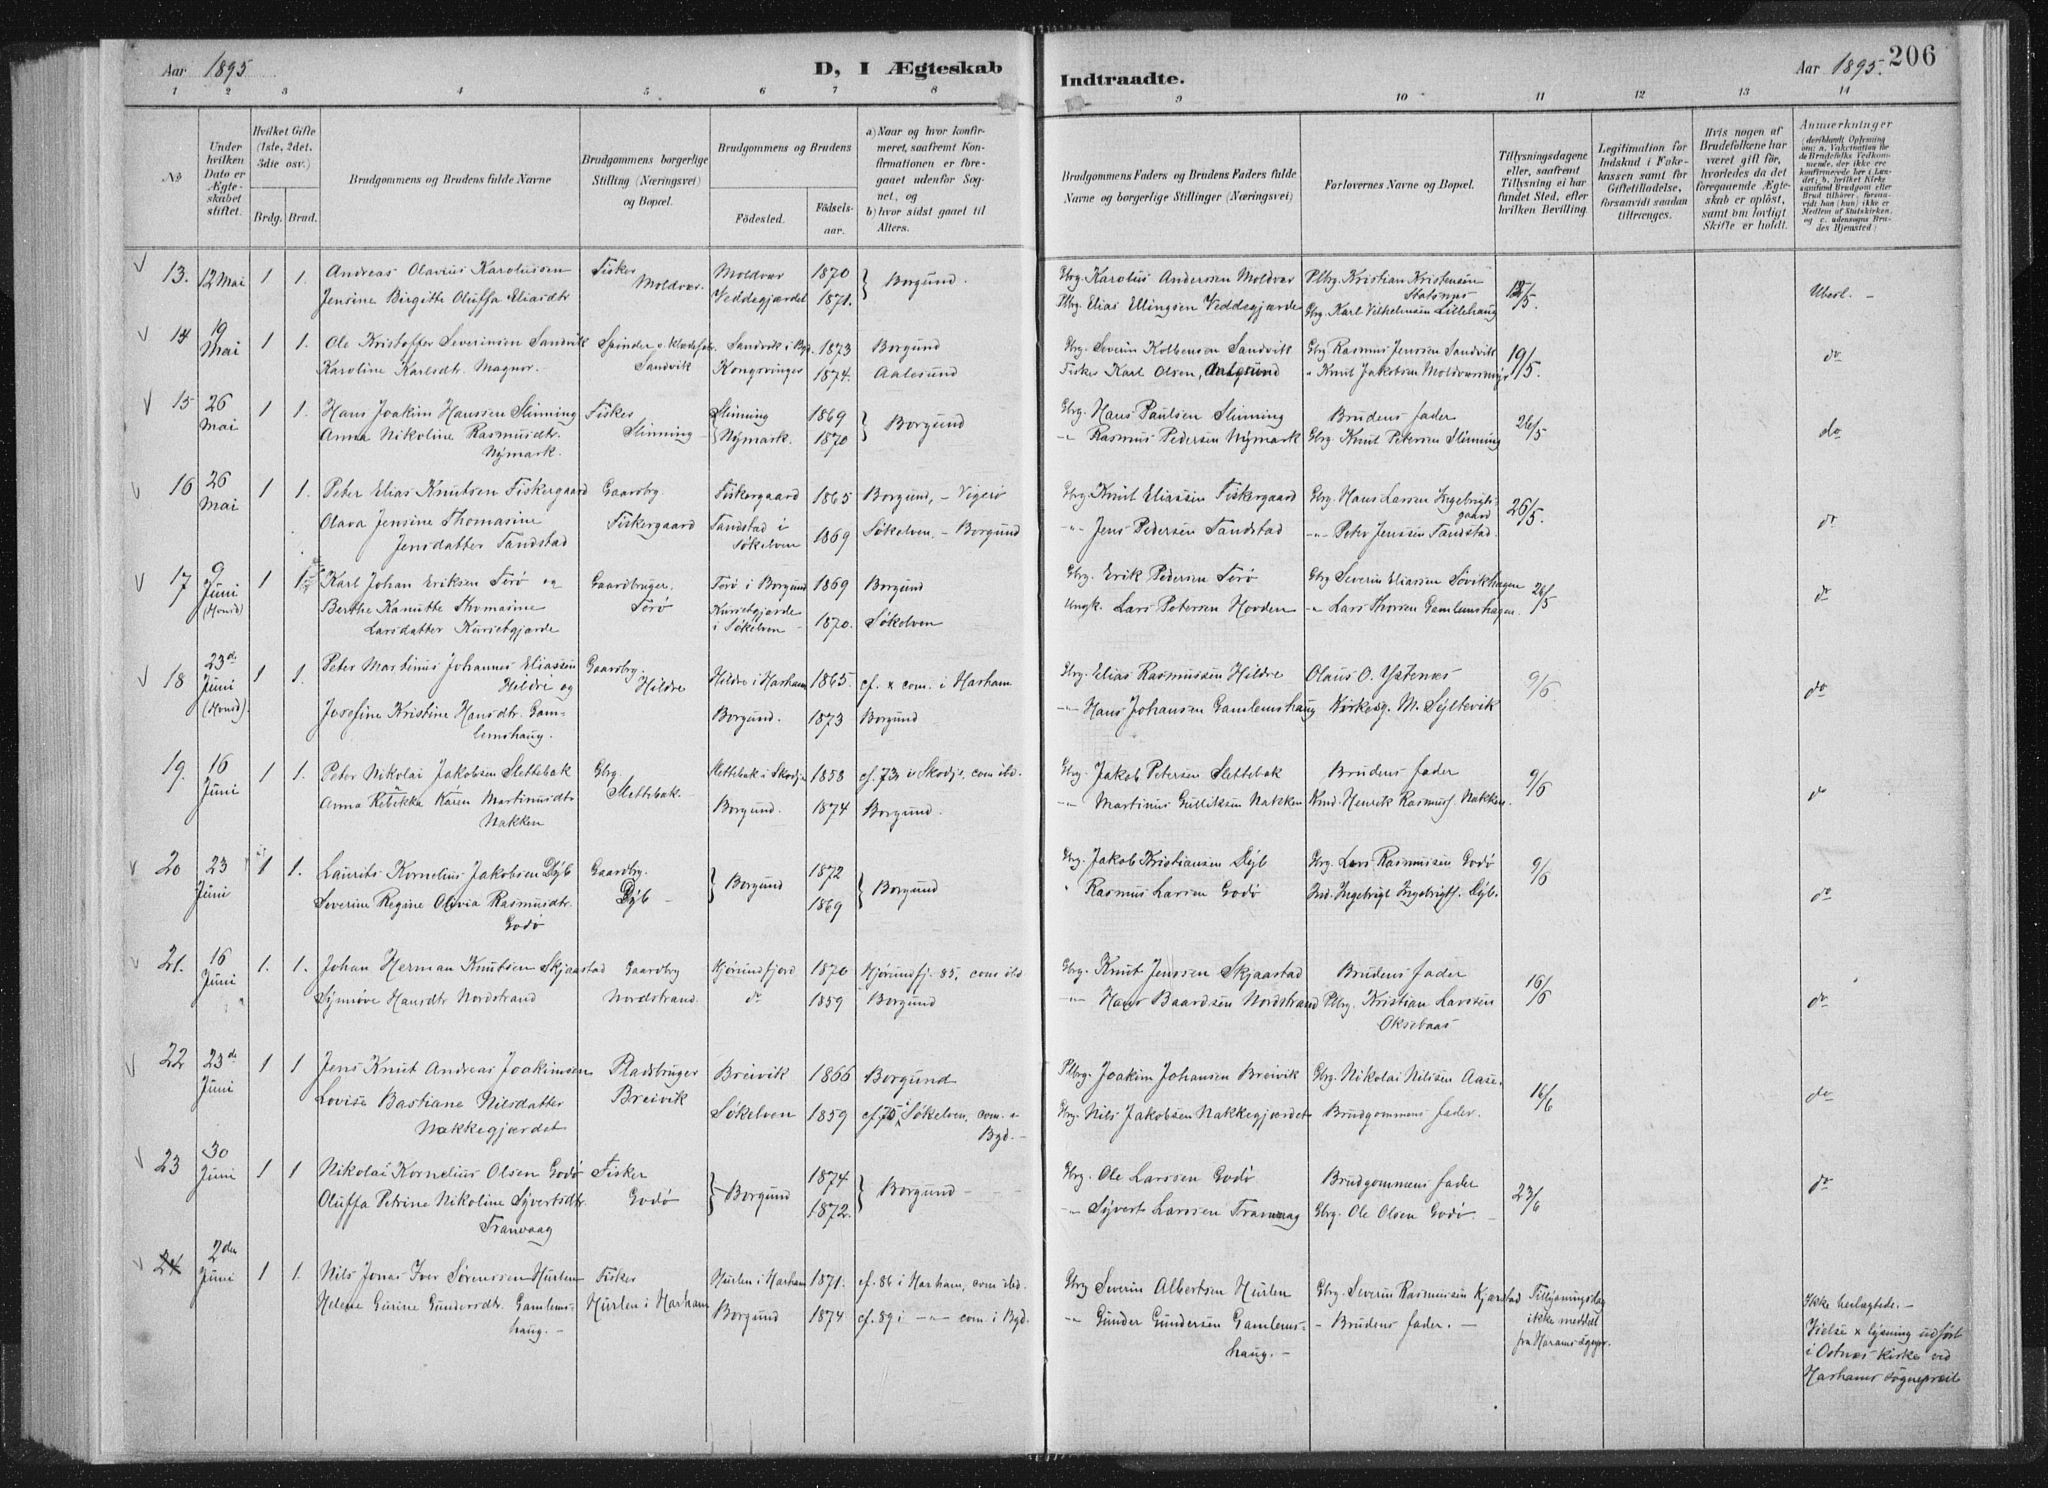 Aar 1895
D, I Ægteskab
Indtraadte.
Aar 1895.
206
1 2 3 4 5 6 7 8 9 10 11 12 13 14
No
Under hvilken Dato er Ægteskabet stiftet.
Hvilket Gifte (1ste, 2det, 3die osv.)
Brdg. Brud.
Brudgommens og Brudens fulde Navne
Brudgommens borgerlige Stilling (Næringsvei) og Bopæl.
Brudgommens og Brudens
Fødested.
Fødselsaar.
a) Naar og hvor konfirmeret, saafremt Konfirmationen er foregaaet udenfor Sognet, og
b) hvor sidst gaaet til Alters.
Brudgommens Faders og Brudens Faders fulde Navne og borgerlige Stillinger (Næringsvei)
Forlovernes Navne og Bopæl.
Tillysningsdagene eller, saafremt Tillysning ei har fundet Sted, efter hvilken Bevilling.
Legitimation for Indskud i Fakekassen samt for Giftetilladelse, forsaavidt saadan tiltrænges.
Hvis nogen af Brudefolkene har været gift før, hvorledes da det foregaaende Ægteskab er opløst, samt om lovligt Skifte er holdt.
Anmærkninger
(deriblandt Oplysning om: a. Vakcination for de Brudefolks Vedkommende, der ikke ere konfirmerede her i Landet; b. hvilket Kirkesamfund Brudgom eller Brud tilhører, forsaavidt han (hun) ikke er Medlem af Statskirken, og c. udensogns Brudes Hjemsted)
13. 12 Mai 1 1. Andreas Olavius Karolussen Fisker Moldvær 1870 Borgund. Gbrg. Karolus Anderssen Moldvær Plbrg. Kristian Kristensen 12/5. Ubesl. -
Jensine Birgitte Oluffa Eliasdtr Moldvær. Veddegjærdet 1871. Plbrg. Elias Ellingsen Veddegjærde Gbrg. Karl Vilhelmsen Lillehaug
14 19 Mai 1 1. Ole Kristoffer Severinsen Sandvik Sandvik i Bgd. 1873 Borgund Gbrg. Severin Kolbensen Sandvik Gbrg Rasmus Jenssen Sandvik 19/5. do
Karoline Karlsdtr. Magnor. - Sandvik Kongsvinger 1874. Aalesund Fisker Karl Olsen, Aalesund " Knut Jakobsen Moldværsmyr
15 26 Mai 1 1. Hans Joakim Hanssen Slinning Fisker Slinning 1869 Borgund Gbrg. Hans Paulsen Slinning Brudens fader 26/5 do
Anna Nikoline Rasmusdtr. Slinning - Nymark. 1870 -"- Rasmus Pedersen Nymark Gbrg. Knut Petersen Slinning
Nymark.
16 26 Mai 1 1. Peter Elias Knutsen Fiskergaard Gaardbg. Fiskergaard 1865 Borgund, - Vigerø Gbrg. Knut Eliassen Fiskergaard Gbrg. Hans Larsen Ingebrigtsgaard 26/5. do
Olava Jensine Thomasine Fiskergaard Tandstad i 1869 Søkelven, - Borgund -"- Jens Pedersen Tandstad -"- Peter Jenssen Tandstad.
Jensdatter Tandstad Søkelven
17 9 Juni 1 1 Karl Johan Eriksen Terø og Gaardbruger. Terø i Borgund 1869 Borgund Gbrg. Erik Pedersen Terø Gbrg Severin Eliassen Søvikhagen 26/5 do
Berthe Kanutte Thomasine Terø Kurset­gjerde 1870. Søkelven Ungk. Lars Petersen Hovden -"- Lars Thorsen Gamlemshagen.
Larsdatter Kursetgjerde i Søkelven
18 23de Juni 1 1. Peter Martinus Johannes Eliassen Gaardbg. Hildre i Harham 1865. cf. x com. i Harham Gbrg. Elias Rasmussen Hildre Olaus O. Ystenæs 9/6 do
Hildre og Hildre
Josefine Kristine Hansdtr. Gam- Borgund. 1873 Borgund -"- Hans Johansen Gamlemshaug Kirkesg. M. Syltevik
lemshaug.
19. 16 Juni 1 1. Peter Nikolai Jakobsen Slettebak Gbrg. Slettebak i Skodje 1858 cf. 73 i Skodje, com ibd. Gbrg. Jakob Petersen Slettebak Brudens fader 9/6 do
Anna Rebekka Karen Martinusdtr Slettebak. Borgund. 1874 Borgund. -"- Martinus Gulliksen Nakken Kmd. Henrik Rasmuss. Nakken.
Nakken
20 23 Juni 1 1. Laurits Kornelius Jakobsen Dyb Gaardbg. Borgund 1872 Borgund Gbrg. Jakob Kristiansen Dyb Gbrg. Lars Rasmussen Godø 9/6 do
Severine Regine Olivia Rasmusdtr. Dyb - 1869 " Rasmus Larsen Godø Ind. Ingebrigt Ingebrigts. Dyb.
Godø
21. 16 Juni 1. 1. Johan Herman Knutsen Skjaastad Gaardbg Hjørundfjord 1870 Hjørundfj. 85, com ibd Gbrg. Knut Jenssen Skjaastad Brudens fader 16/6 do
Synnøve Hansdtr Nordstrand Nordstrand. do 1859 Borgund -"- Hans Baardsen Nordstrand Plbg. Kristian Larssen
Oksebaas
22 23de Juni 1 1. Jens Knut Andreas Joakimsen Pladsbruger Breivik 1866 Borgund Plbrg. Joakim Johansen Breivik Gbrg. Nikolai Nilsen Aase. 16/6 do
Lovise Bastiane Nilsdatter Breivik Søkelven 1859 cf. 75 i Søkelven, com. i Gbrg. Nils Jakobsen Nakkegjærdet Brudgommens fader.
Nakkegjærdet Bgd. -
23 30 Juni 1 1 Nikolai Kornelius Olsen Godø Fisker Borgund 1874 Borgund - Gbrg. Ole Larssen Godø Brudgommens fader 23/6 do
Oluffa Petrine Nikoline Syvertsdtr. Godø 1872. -"- Syvert Larssen Tranvaag Gbrg. Ole Olsen Godø. -
Tranvaag
24 2den Juni 1 1. Nils Jonas Iver Sørenssen Hurlen Fisker Hurlen i Harham 1871. cf. 86 i Harham, com ibd. Gbrg Severin Albertsen Hurlen Gbrg. Severin Rasmussen Kjærstad Tillysningsdag Ikke heilagtede. -
Helene Gurine Gundersdtr. Gamlems- Hurlen i Harham Borgund 1874 cf. 89 i -"- com. i Bgd. -"- Gunder Gundersen Gamlems- - Brudens fader. - ikke meddelt Vielse x lysning udført
haug. - haug. - fra Harams sognepr. i Østnæs kirke ved
Harhams sognepræst